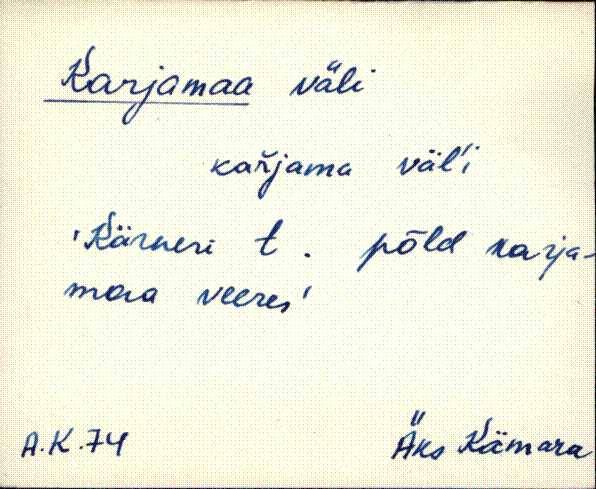 Karjamaa väli
kařjama väĺi
'Kärneri t. põld karja-
maa veeres'
A.K.74 Äks Kämara